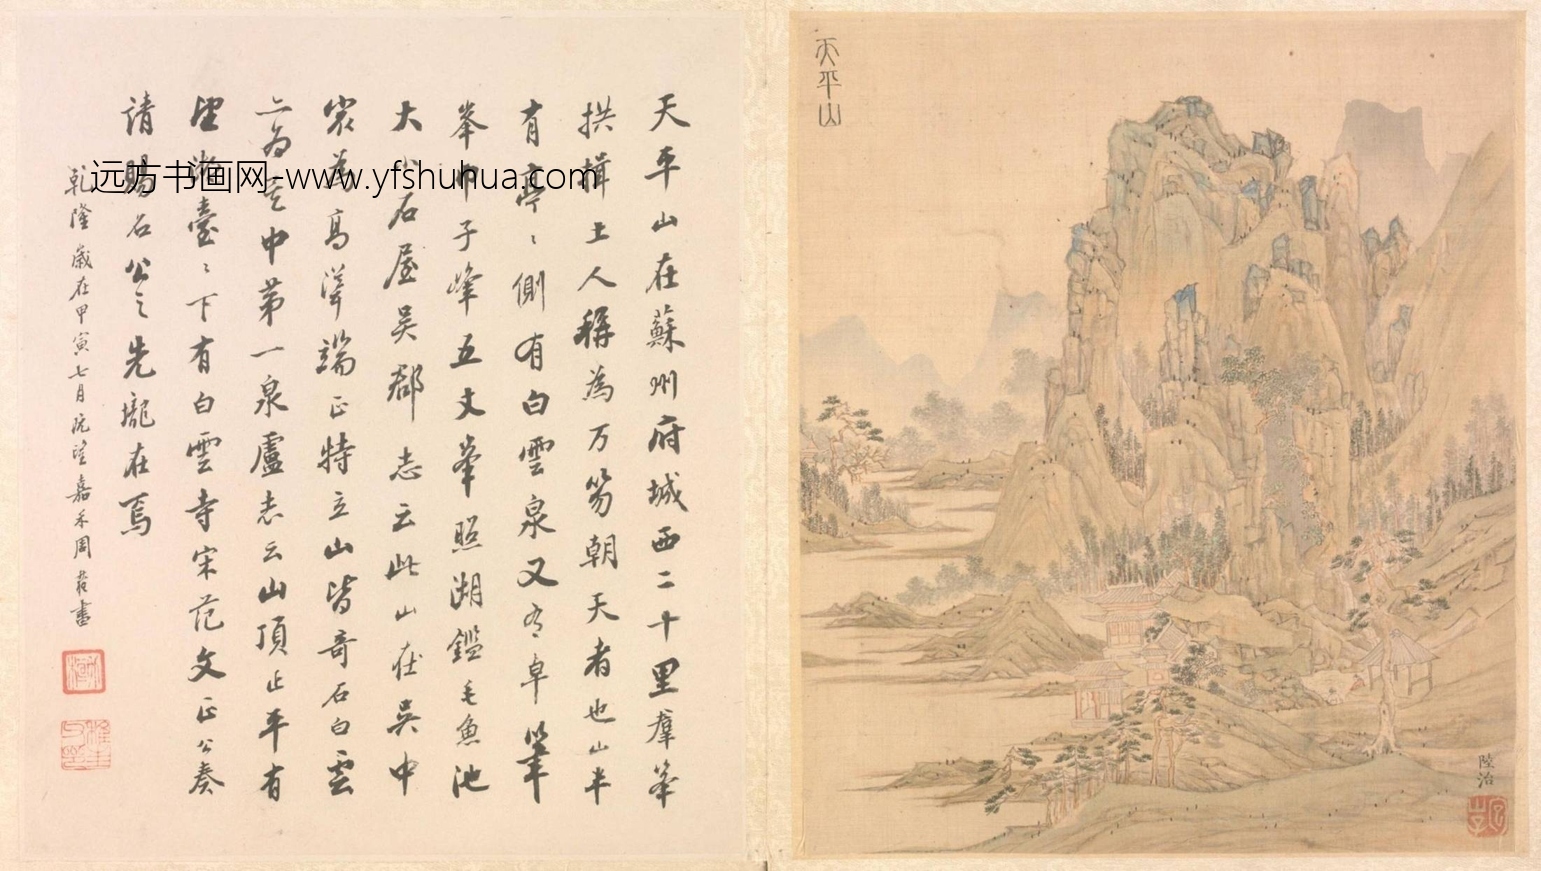 天平山
陸治
天平山在蘇州府城西二十里羣峯
拱揖土人稱為万笏朝天者也山半
有亭〻側有白雲泉又有卓筆
峯巾子峰五丈峯照湖鑑毛魚池
大小石屋吴郡志云此山在吴中
㝡為高聳端正特立山皆奇石白雲
二為吴中第一泉盧志云山頂正平有
望湖臺〻下有白雲寺宋范文正公奏
請賜石公之先壠在焉
乾隆歲在甲寅七月既望嘉禾周書
远方书画网-www.yfshuhua.com